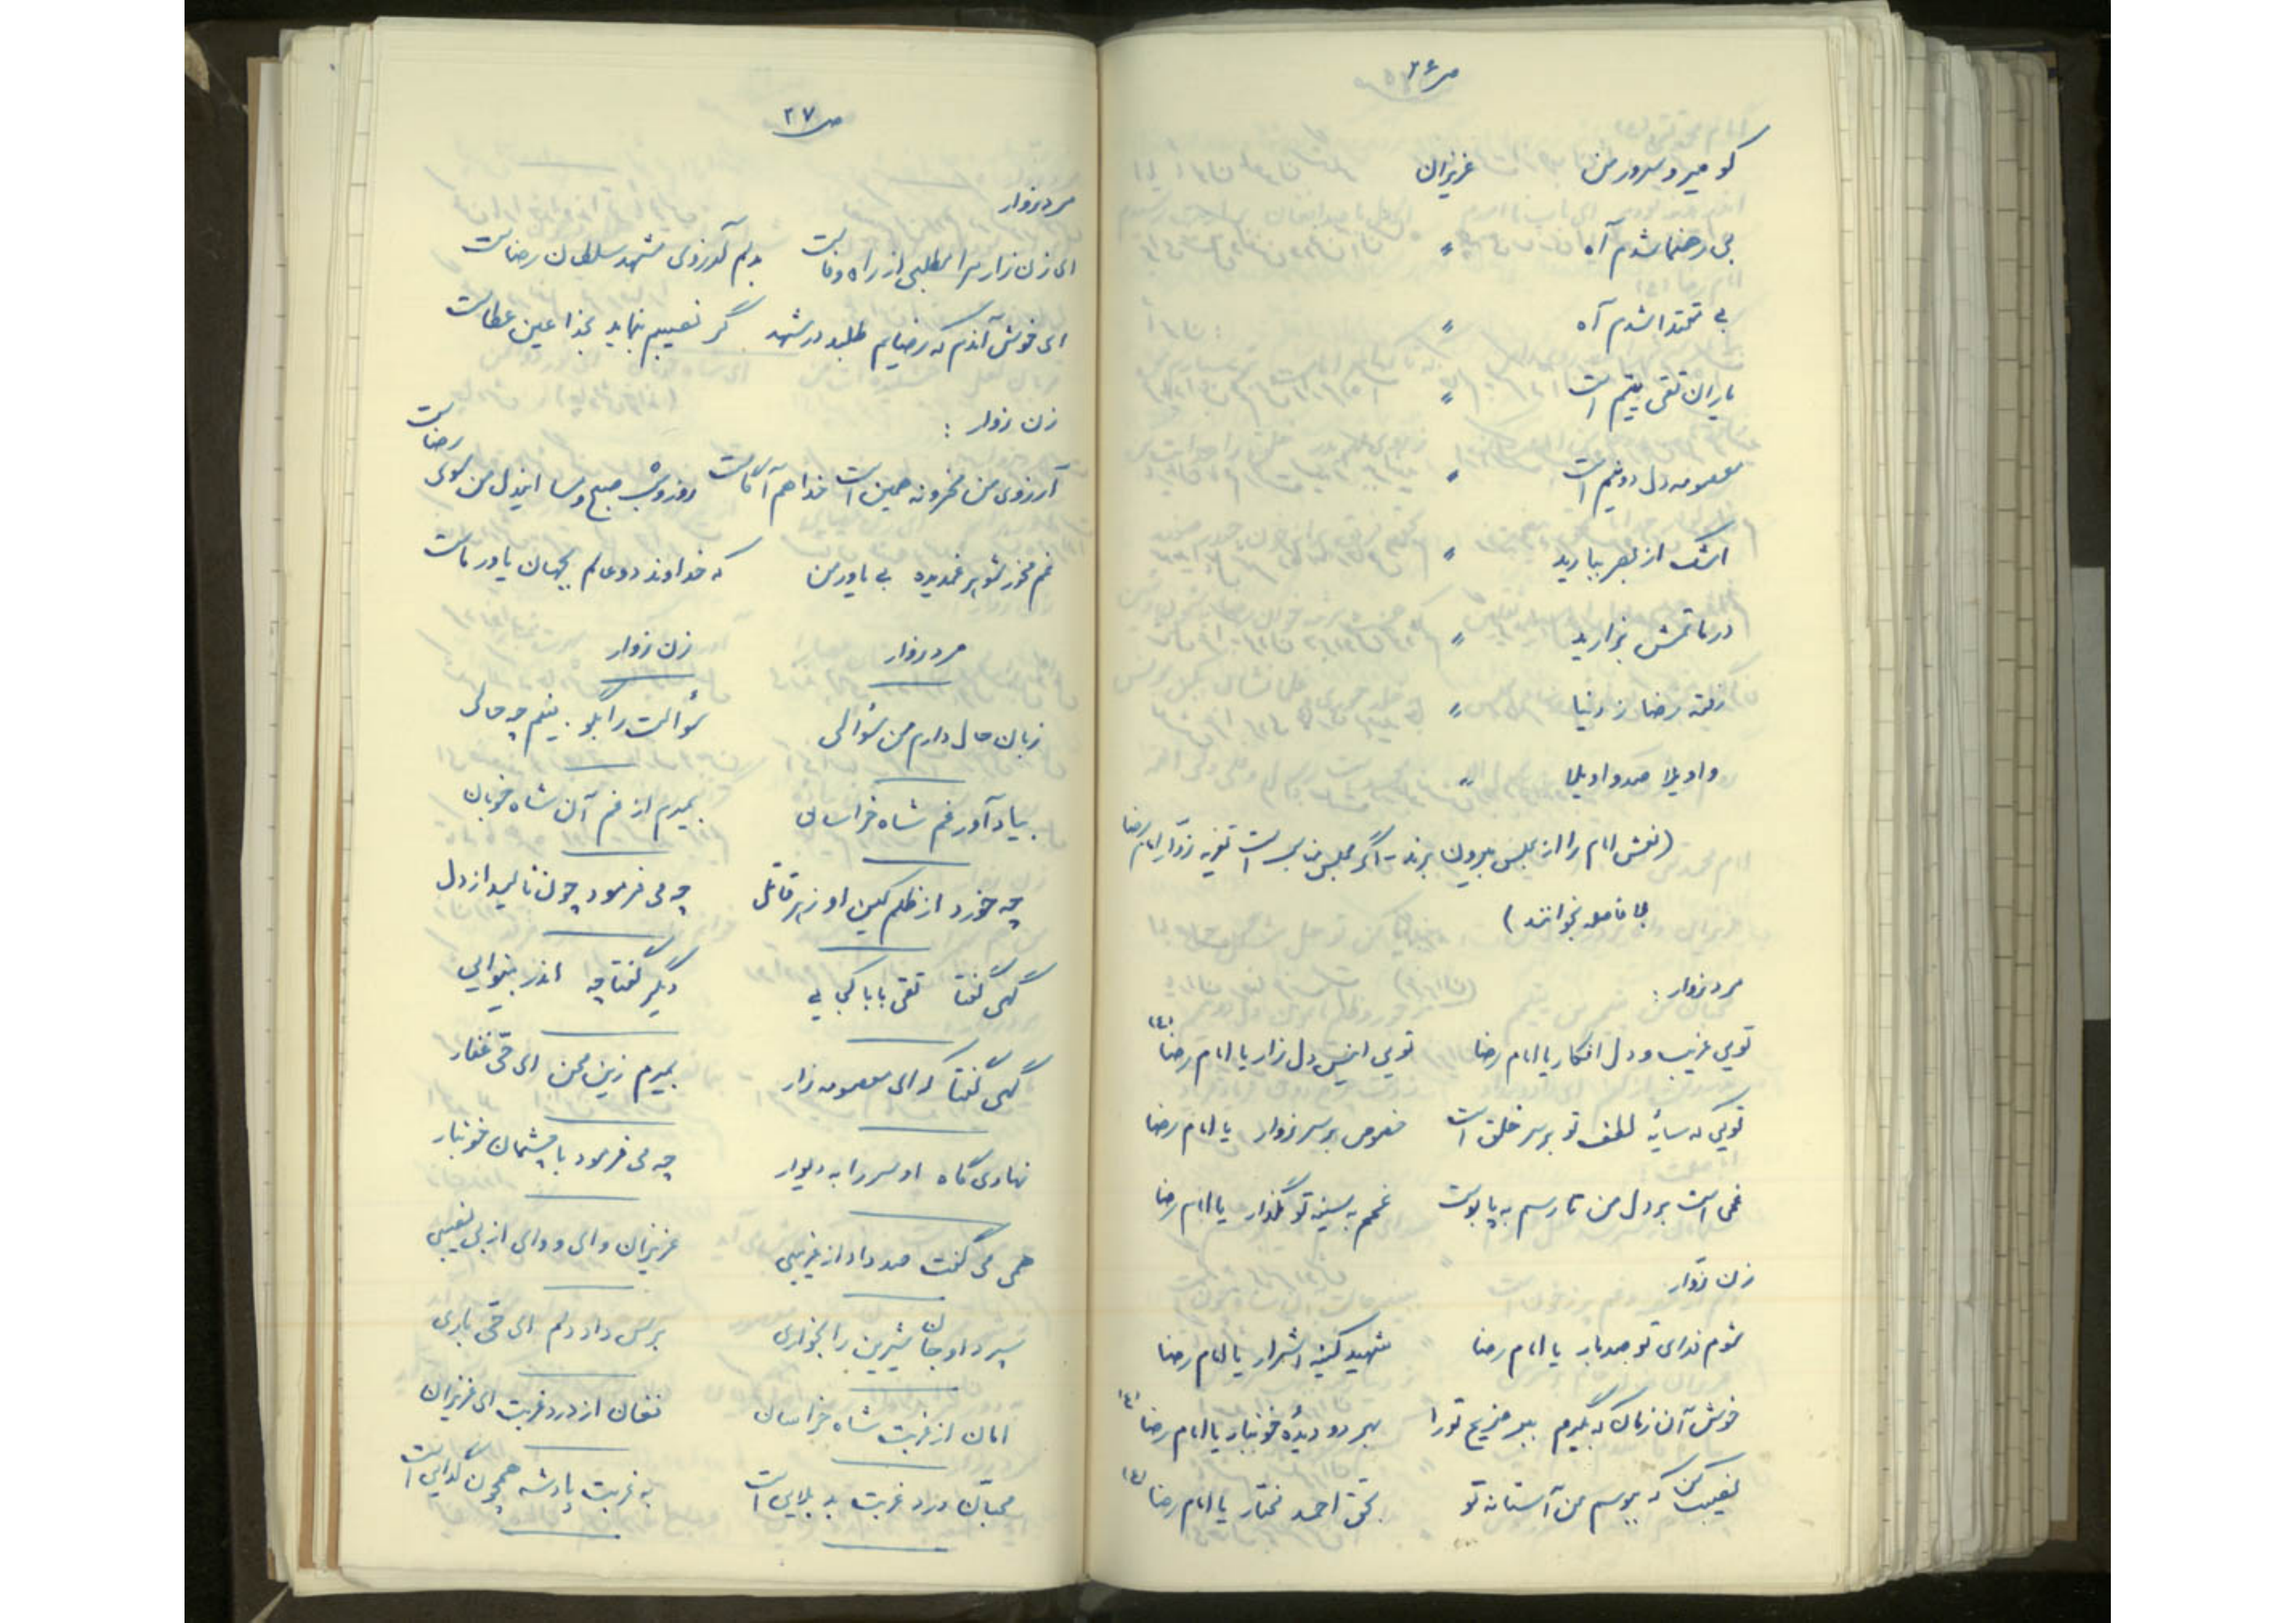 ص ۲۶
کو میر و سرور من عزیزان
بی رهنما شدم آه "
بی مقتدا شدم آه "
یاران تقی یتیم است "
معصومه دل دو نیم است "
اشک از بصر ببارید "
در ماتمش بزارید "
رفته رضا ز دنیا "
واویلا صد واویلا "
(نعش امام را از مجلس بیرون برند - اگر مجلس بس است تعزیه زوّار امام رضا
بلا فاصله بخوانند)
مرد زوار :
تویی غریب و دل افکار یا امام رضا تویی انیس دل زار یا امام رضا (ع)
تویی که سایهٔ لطف تو بر سر خلق است خصوص بر سر زوار یا امام رضا
غمی است بر دل من تا رسم به پابوست غمم به سینه تو مگذار یا امام رضا
زن زوّار
شوم فدای تو صد بار یا امام رضا شهید کینهٔ اشرار یا امام رضا
خوش آن زمان که بگیرم ببر ضریح تو را بهر دو دیدهٔ خونبار یا امام رضا (ع)
نصیب کن که ببوسم من آستانه تو بحق احمد مختار یا امام رضا (ع)
ص ۲۷
مرد زوار
ای زن زار مرا مطلبی از راه وفاست بدلم آرزوی مشهد سلطان رضاست
ای خوش آندم که رضایم طلبد در مشهد گر نصیبم بنماید بخدا عین عطاست
زن زوار :
آرزوی من محزونه همین است خدا هم آگاست روز و شب صبح و مسا ایندل من سوی رضاست
غم مخور شوهر غمدیده بی یاور من که خداوند دو عالم بجهان یاور ماست
مرد زوار زن زوار
زبان حال دارم من سؤالی سؤالت را بگو بینم چه حالی
بیاد آور غم شاه خراسان بمیرم از غم آن شاه خوبان
چه خورد از ظلم کین او زهر قاتل چه می فرمود چون نالید از دل
گهی گفتا تقی بابا کجایی دگر گفتا چه اندر بینوایی
گهی گفتا که ای معصومه زار بمیرم زین محن ای حیّ غفار
نهادی گاه او سر را به دیوار چه می فرمود با چشمان خونبار
همی می گفت صد داد از غریبی عزیزان وای و وای از بی نصیبی
سپرد او جان شیرین را بخواری برس داد دلم ای حیّ باری
امان از غربت شاه خراسان فغان از درد غربت ای عزیزان
محبّان درد غربت بد بلایی است به غربت پادشه همچون گدایی است